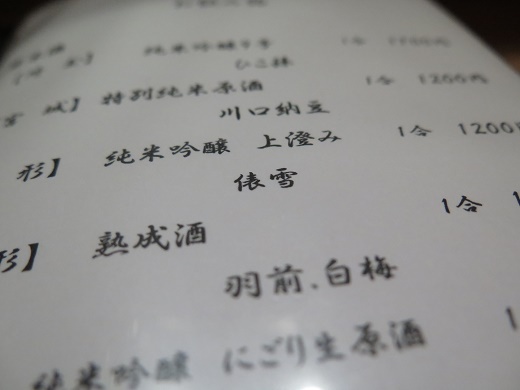 純米吟醸 1合
ひこ孫
宮城】 特別純米原酒 1合 1200円
川口納豆
形】 純米吟醸 上澄み 1合 1200円
俵雪
形】 熟成酒 1合 1
羽前、白梅
純米吟醸 にごり生原酒 1